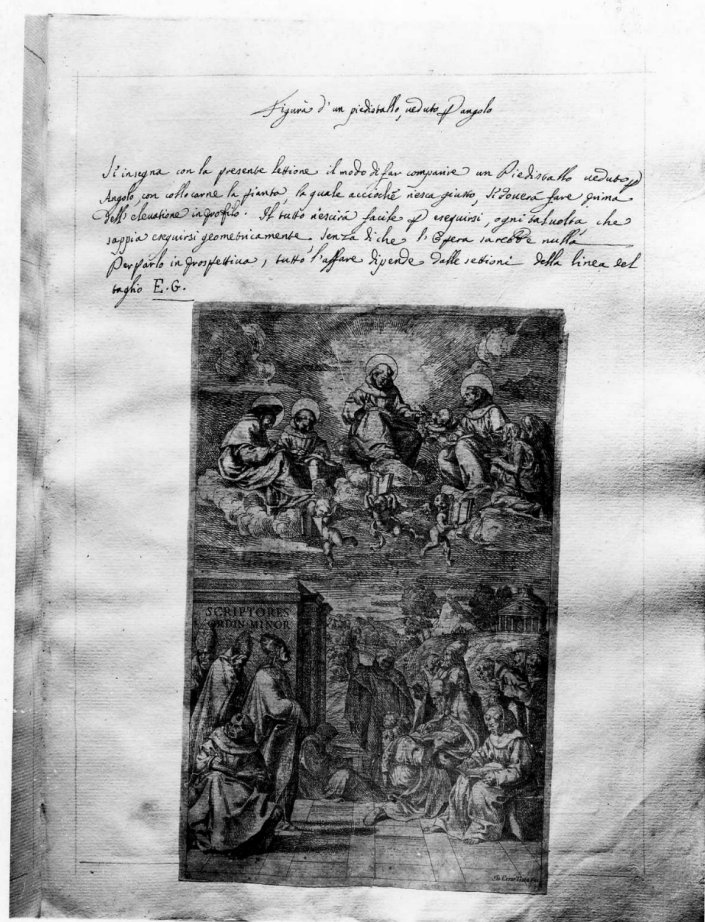 Figura d'un piedistallo, veduto p angolo
Si insegna con la presente lettione il modo di far comparire un Piedistallo veduto p
Angolo, con collocarne la pianta, la quale acciochè riesca giusto, si doverà fare prima
dell' elevatione in profilo. Il tutto riescirà facile p esequirsi, ogni tal volta che
sappia esequirsi geometricamente, senza di che l'Opera sarebbe nulla
Per farlo in prospettiva, tutto l'affare dipende dalle settioni della linea del
taglio E.G.
SCRIPTORES
ORDIN MINOR